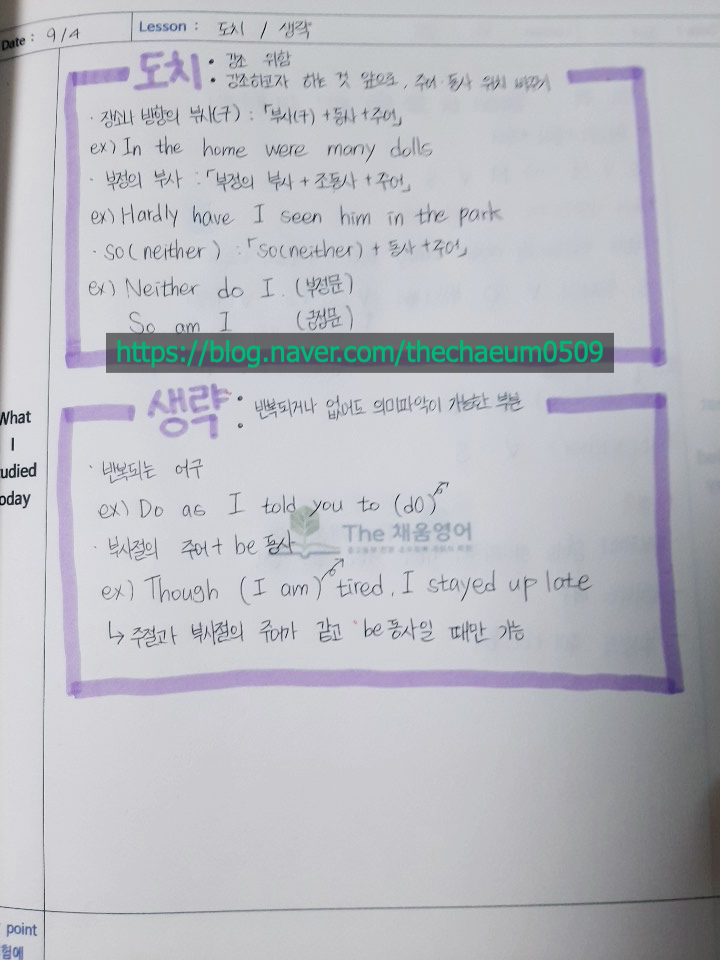 Date : 9/4
Lesson : 도치 / 생략
도치 • 강조 위함
• 강조하고자 하는 것 앞으로, 주어·동사 위치 바꾸기
· 장소나 방향의 부사(구) : 「부사(구) + 동사 + 주어」
ex) In the home were many dolls
· 부정의 부사 : 「부정의 부사 + 조동사 + 주어」
ex) Hardly have I seen him in the park
· so(neither) : 「so(neither) + 동사 + 주어」
ex) Neither do I. (부정문)
So am I (긍정문)
https://blog.naver.com/thechaeum0509
생략 : 반복되거나 없어도 의미파악이 가능한 부분
What
I
udied
oday
· 반복되는 어구
ex) Do as I told you to (do)
The 채움영어
· 부사절의 주어 + be 동사
ex) Though (I am) tired, I stayed up late
↳ 주절과 부사절의 주어가 같고 be동사일 때만 가능
point
험에